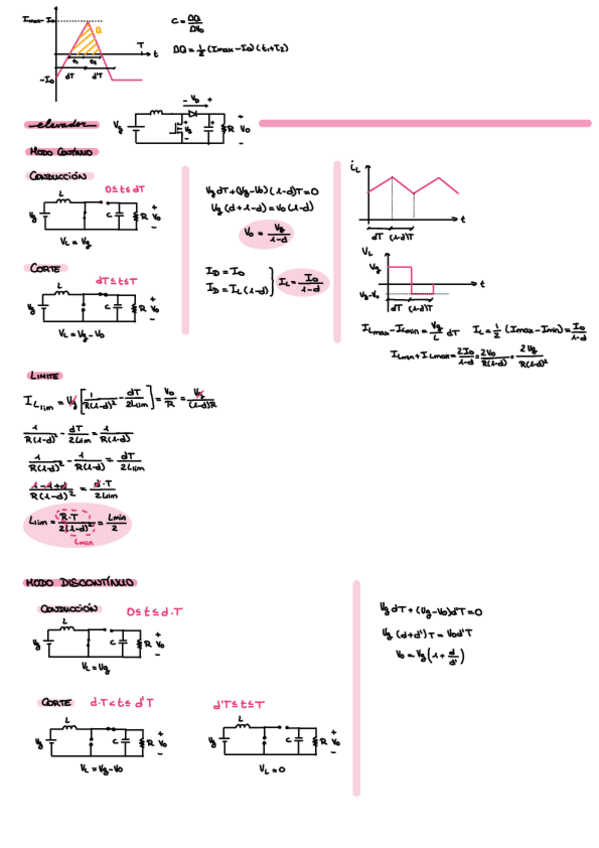 Imax-Io
Q
T
t
t1 t2
-Io
dT d'T
C = ΔQ/ΔVo
ΔQ = 1/2 (Imax-Io)(t1+t2)
elevador
Vg
- VD +
R Vo
MODO CONTINUO
CONDUCCIÓN
0≤t≤dT
L
Vg
C
R Vo
VL = Vg
CORTE
dT≤t≤T
L
Vg
C
R Vo
VL = Vg-Vo
Vg dT + (Vg-Vo)(1-d)T = 0
Vg (d+1-d) = Vo (1-d)
Vo = Vg/(1-d)
ID = Io
ID = IL (1-d)
IL = Io/(1-d)
iL
t
dT (1-d)T
VL
Vg
t
Vg-Vo
dT (1-d)T
ILmax-ILmin = Vg/L dT IL = 1/2 (Imax-Imin) = Io/(1-d)
ILmin+ILmax = 2Io/(1-d) = 2Vo/R(1-d) = 2Vg/R(1-d)²
LIMITE
ILlim = Vg [1/R(1-d)² - dT/2Llim] = Vo/R = Vg/(1-d)R
1/R(1-d)² - dT/2Llim = 1/R(1-d)
1/R(1-d)² - 1/R(1-d) = dT/2Llim
1-1+d/R(1-d)² = d·T/2Llim
Llim = R·T/2(1-d)² = Lmin/2
Lmin
MODO DISCONTÍNUO
CONDUCCIÓN
0≤t≤d·T
L
Vg
C
R Vo
VL = Vg
CORTE
d·T<t≤d'T
L
Vg
C
R Vo
VL = Vg-Vo
d'T≤t≤T
L
Vg
C
R Vo
VL = 0
Vg dT + (Vg-Vo)d'T = 0
Vg (d+d')T = Vod'T
Vo = Vg(1+d/d')